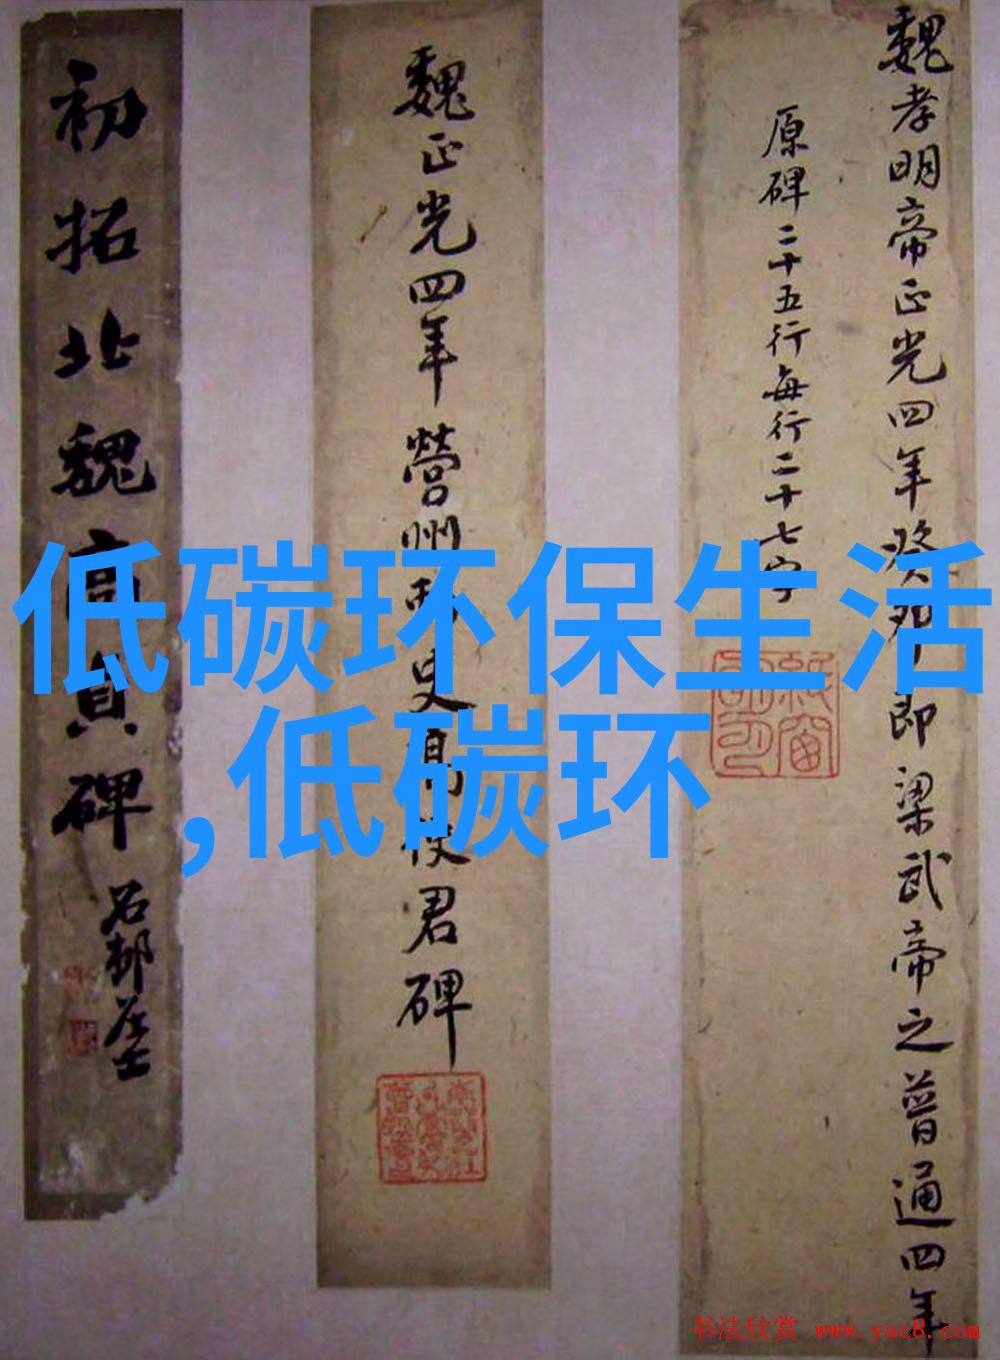 魏孝明帝正光四年癸卯即梁武帝之普通四年
原碑二十五行每行二十七字
魏正光四年營州刺史高使君碑
初拓北魏高貞碑
低碳环保生活
,低碳环
书法欣赏 www.yac8.com